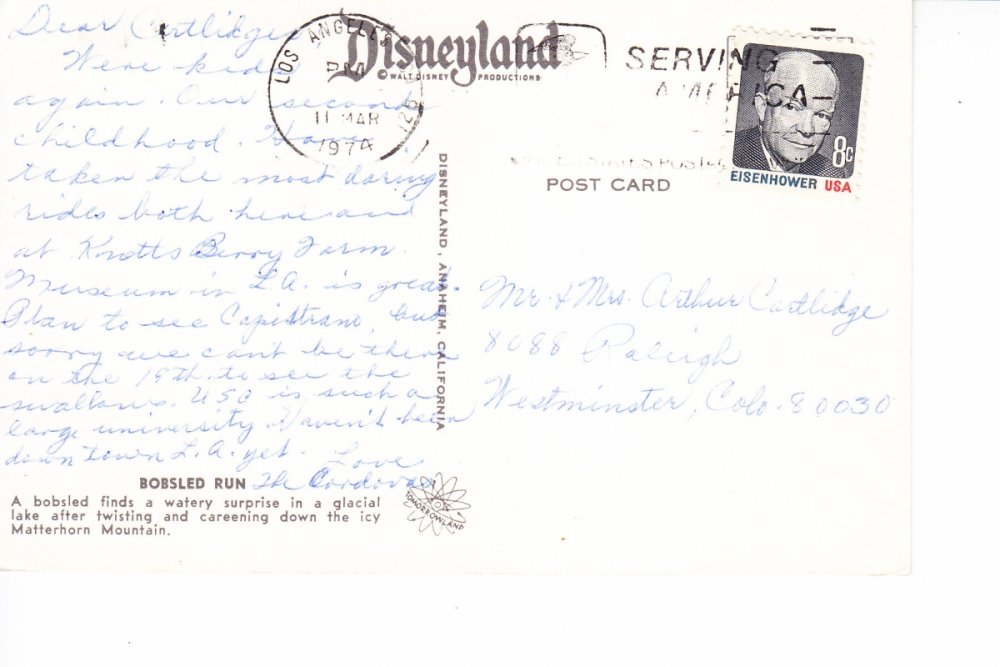 Dear Cartlidges
Were kids
again. Our second
childhood. Have
taken the most daring
rides both here and
at Knotts Berry Farm.
Museum in L.A. is great.
Plan to see Capistrano, but
sorry we can't be there
on the 19th to see the
swallows. USC is such a
large university. Haven't been
down town L.A. yet. Love
The Cordovas
BOBSLED RUN
A bobsled finds a watery surprise in a glacial
lake after twisting and careening down the icy
Matterhorn Mountain.
TOMORROWLAND
DISNEYLAND, ANAHEIM, CALIFORNIA
Disneyland
© WALT DISNEY PRODUCTIONS
LOS ANGELES
PM
11 MAR
1974
SERVING
AMERICA
UNITED STATES POSTAL
8c
EISENHOWER USA
POST CARD
Mr. & Mrs. Arthur Cartlidge
8088 Raleigh
Westminster, Colo. 80030